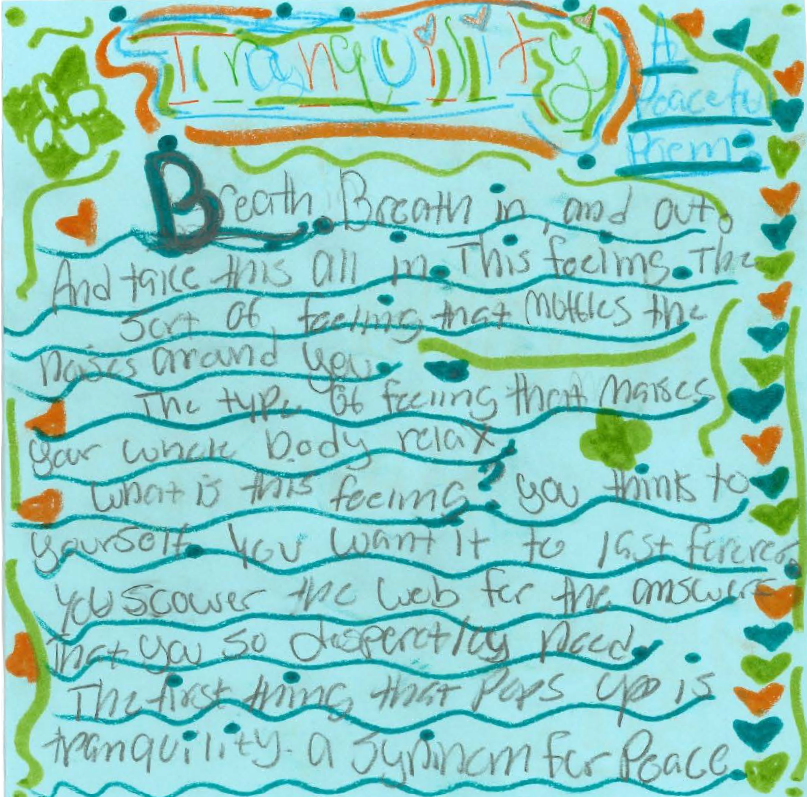 Tranquility
A
Peaceful
Poem
Breath. Breath in, and out.
And take this all in. This feeling. The
sort of feeling that muffles the
noises around you.
The type of feeling that makes
your whole body relax,
What is this feeling? you think to
yourself. You want it to last forever,
you scower the web for the answers
That you so desperatley need.
The first thing that Pops up is
tranquility. a syninom for Peace